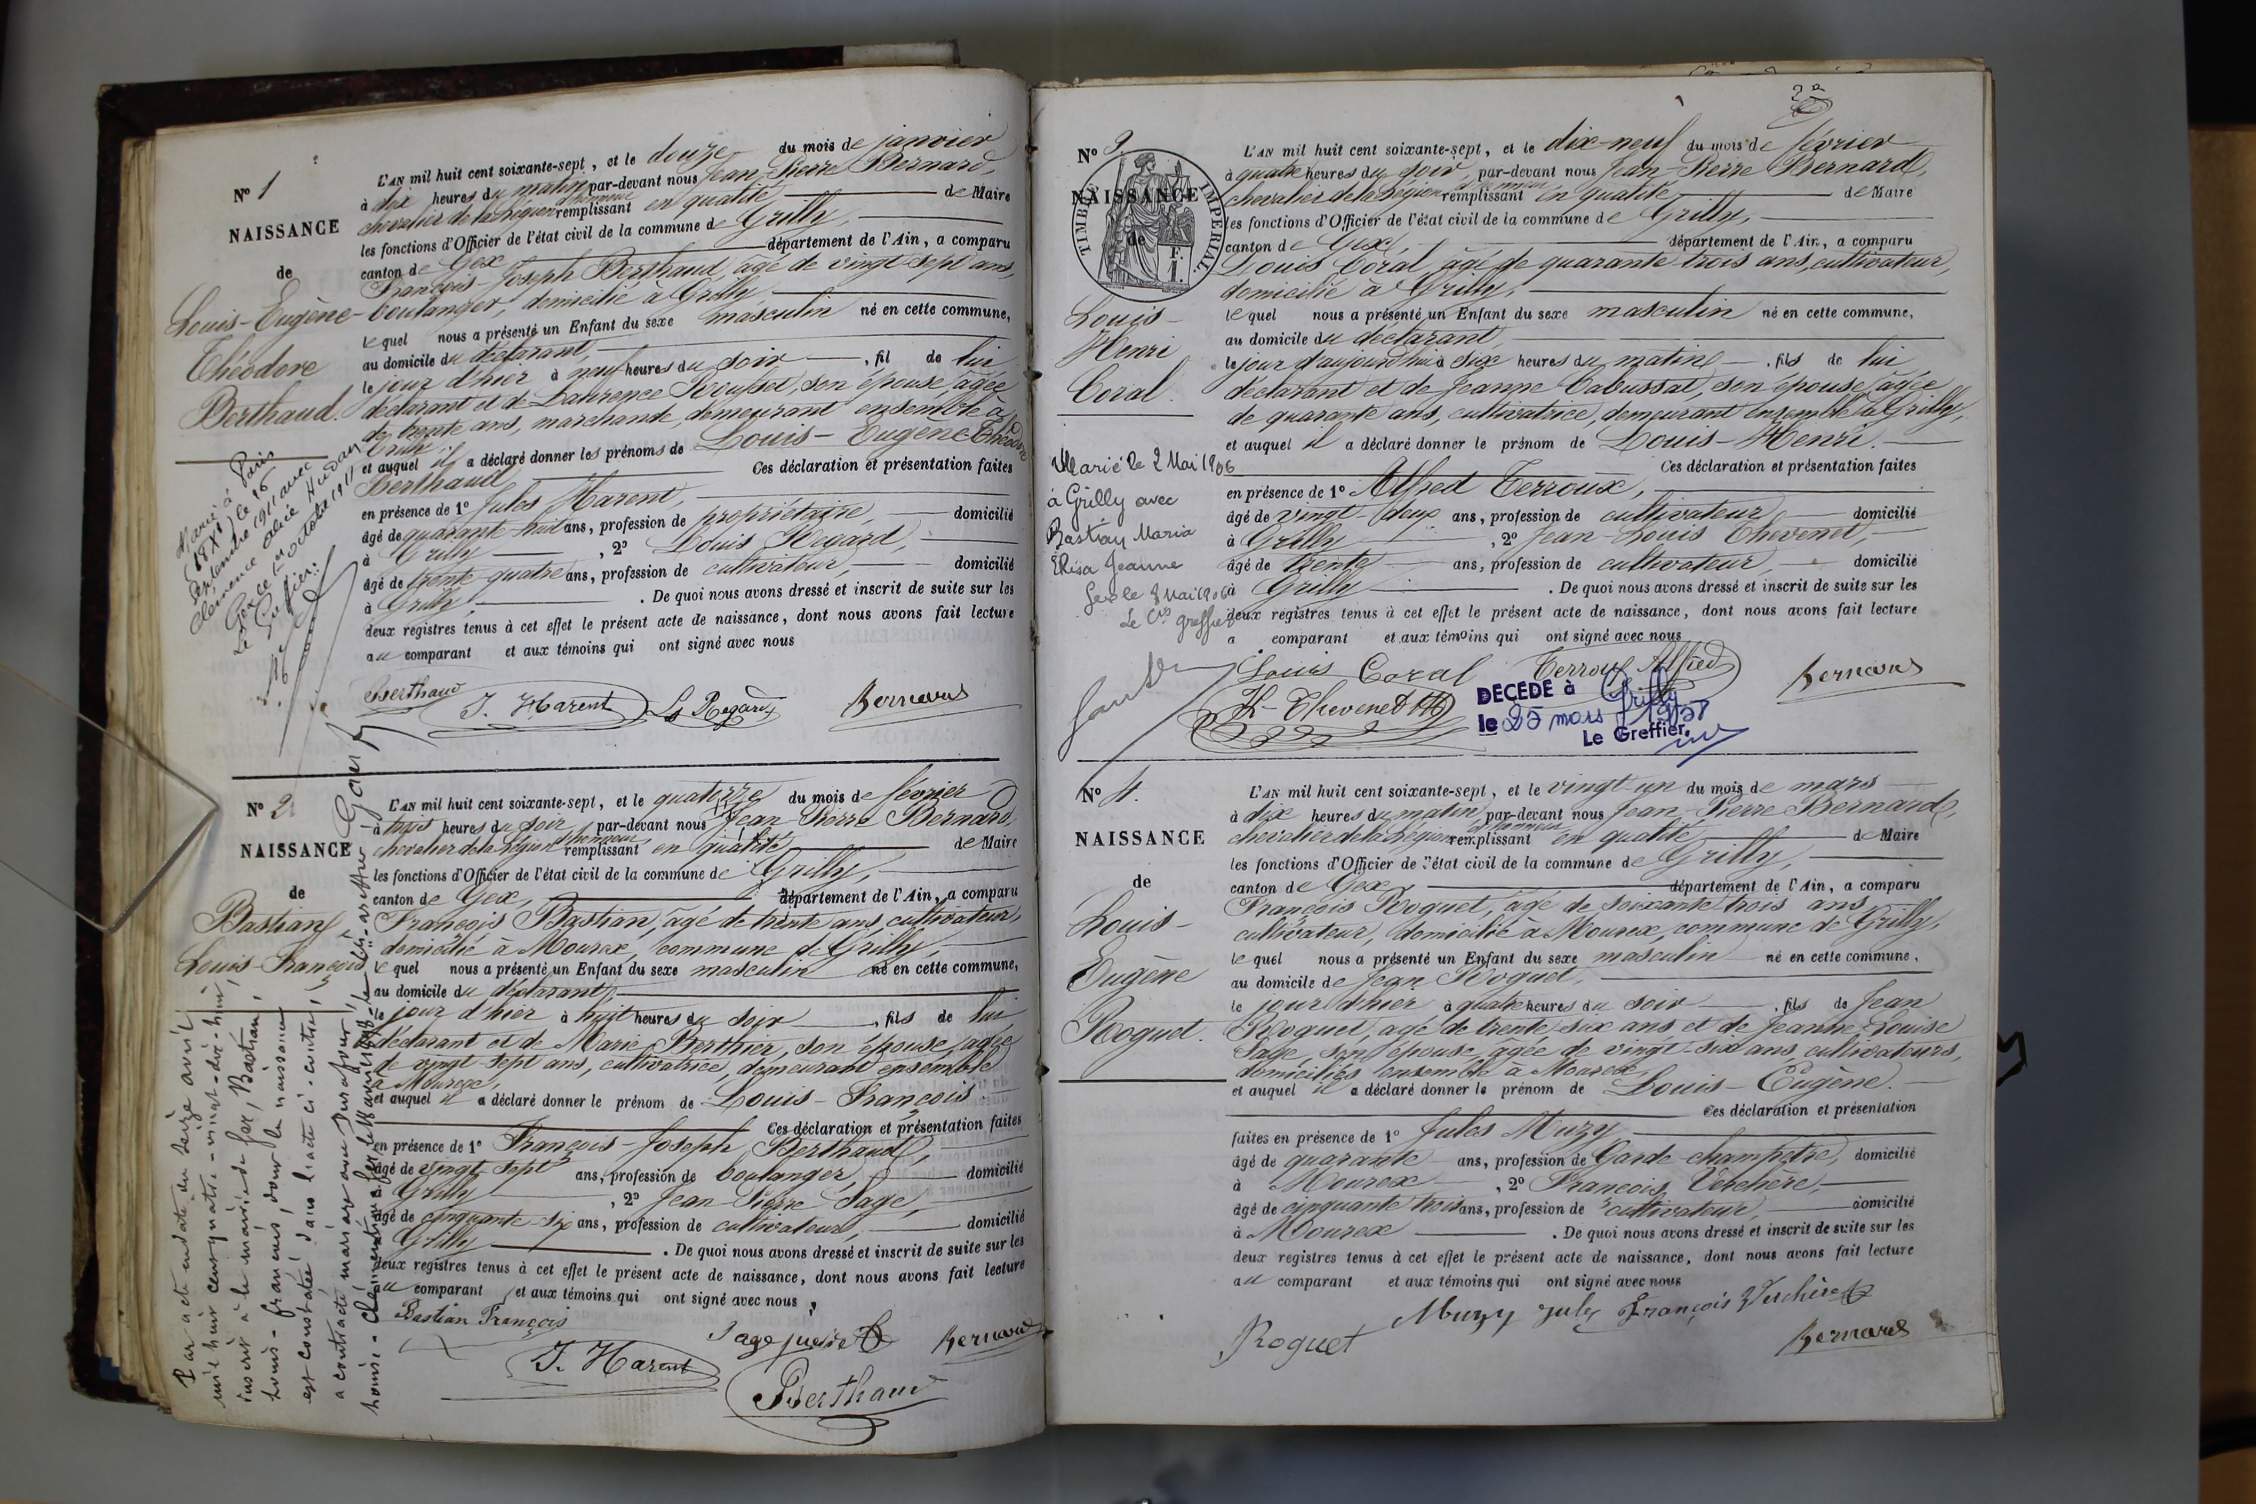 N° 1
NAISSANCE
de
Louis-Eugène-
Théodore
Berthaud.
L'AN mil huit cent soixante-sept, et le douze du mois de janvier
à dix heures du matin par-devant nous Jean-Pierre Bernard,
chevalier de la légion d'honneur remplissant en qualité de Maire
les fonctions d'Officier de l'état civil de la commune de Grilly,
canton de Gex département de l'Ain, a comparu
François-Joseph Berthaud, âgé de vingt sept ans,
boulanger, domicilié à Grilly,
lequel nous a présenté un Enfant du sexe masculin né en cette commune,
au domicile du déclarant,
le jour d'hier à neuf heures du soir, fil de lui
déclarant et de Laurence Rousset, son épouse, âgée
de trente ans, marchande, demeurant ensemble à
Grilly
et auquel il a déclaré donner les prénoms de Louis-Eugène Théodore
Berthaud Ces déclaration et présentation faites
en présence de 1° Jules Harent,
âgé de quarante huit ans, profession de propriétaire, domicilié
à Grilly, 2° Louis Regard,
âgé de trente quatre ans, profession de cultivateur, domicilié
à Grilly. De quoi nous avons dressé et inscrit de suite sur les
deux registres tenus à cet effet le présent acte de naissance, dont nous avons fait lecture
au comparant et aux témoins qui ont signé avec nous
Berthaud J. Harent Ls Regard Bernard
Marié à Paris
(18e) le 16
septembre 1911 avec
Clémence Alice
Gex le octobre 1911
Le Greffier:
N° 2
NAISSANCE
de
Bastian
Louis-François
L'AN mil huit cent soixante-sept, et le quatorze du mois de février
à trois heures du soir par-devant nous Jean-Pierre Bernard
chevalier de la légion d'honneur remplissant en qualité de Maire
les fonctions d'Officier de l'état civil de la commune de Grilly,
canton de Gex, département de l'Ain, a comparu
François Bastian, âgé de trente ans, cultivateur,
domicilié à Mourex, commune de Grilly,
lequel nous a présenté un Enfant du sexe masculin né en cette commune,
au domicile du déclarant,
le jour d'hier à huit heures du soir, fils de lui
déclarant et de Marie Berthier, son épouse, âgée
de vingt sept ans, cultivatrice, demeurant ensemble
à Mourex,
et auquel il a déclaré donner le prénom de Louis-François
Ces déclaration et présentation faites
en présence de 1° François-Joseph Berthaud,
âgé de vingt sept ans, profession de boulanger, domicilié
Grilly, 2° Jean-Pierre Sage,
âgé de cinquante six ans, profession de cultivateur, domicilié
Grilly. De quoi nous avons dressé et inscrit de suite sur les
deux registres tenus à cet effet le présent acte de naissance, dont nous avons fait lecture
au comparant et aux témoins qui ont signé avec nous
Bastian François
J. Harent Sage Bernard
Berthaud
Par acte en date du seize avril
mil huit cent quatre-vingt-dix-huit,
inscrit à la mairie de Gex, Bastian,
Louis-François, dont la naissance
est constatée dans l'acte ci-contre,
a contracté mariage avec
Louise-Clémentine
N° 3.
NAISSANCE
de
TIMBRE IMPERIAL
Louis-
Henri
Coral.
L'AN mil huit cent soixante-sept, et le dix-neuf du mois de février
à quatre heures du soir, par-devant nous Jean-Pierre Bernard,
chevalier de la légion d'honneur remplissant en qualité de Maire
les fonctions d'Officier de l'état civil de la commune de Grilly,
canton de Gex, département de l'Ain, a comparu
Louis Coral, âgé de quarante-trois ans, cultivateur,
domicilié à Grilly,
lequel nous a présenté un Enfant du sexe masculin né en cette commune,
au domicile du déclarant,
le jour d'aujourd'hui à six heures du matin, fils de lui
déclarant et de Jeanne Cabussat, son épouse, âgée
de quarante ans, cultivatrice, demeurant ensemble à Grilly,
et auquel il a déclaré donner le prénom de Louis-Henri.
Ces déclaration et présentation faites
en présence de 1° Alfred Terroux,
âgé de vingt-deux ans, profession de cultivateur domicilié
à Grilly, 2° Jean-Louis Thevenet,
âgé de trente ans, profession de cultivateur, domicilié
à Grilly. De quoi nous avons dressé et inscrit de suite sur les
deux registres tenus à cet effet le présent acte de naissance, dont nous avons fait lecture
a comparant et aux témoins qui ont signé avec nous
Louis Coral Terroux Alfred Bernard
Thevenet
Marié le 2 Mai 1906
à Grilly avec
Bastian Maria
Elisa Jeanne
Gex le 8 Mai 1906
Le Cis greffier
DÉCÉDÉ à Grilly
le 25 mars
Le Greffier,
N° 4.
NAISSANCE
de
Louis-
Eugène
Roguet.
L'AN mil huit cent soixante-sept, et le vingt-un du mois de mars
à dix heures du matin, par-devant nous Jean-Pierre Bernard,
chevalier de la légion d'honneur remplissant en qualité de Maire
les fonctions d'Officier de l'état civil de la commune de Grilly,
canton de Gex, département de l'Ain, a comparu
François Roguet, âgé de soixante-trois ans
cultivateur, domicilié à Mourex, commune de Grilly,
lequel nous a présenté un Enfant du sexe masculin né en cette commune,
au domicile de Jean Roguet,
le jour d'hier à quatre heures du soir, fils de Jean
Roguet, âgé de trente six ans et de Jeanne-Louise
Sage, son épouse, âgée de vingt-six ans, cultivateurs,
domiciliés ensemble à Mourex
et auquel il a déclaré donner le prénom de Louis-Eugène.
Ces déclaration et présentation
faites en présence de 1° Jules Muzy
âgé de quarante ans, profession de Garde champêtre, domicilié
à Mourex, 2° François Verchère,
âgé de cinquante trois ans, profession de cultivateur, domicilié
à Mourex. De quoi nous avons dressé et inscrit de suite sur les
deux registres tenus à cet effet le présent acte de naissance, dont nous avons fait lecture
au comparant et aux témoins qui ont signé avec nous
Roguet Muzy Jules François Verchère
Bernard